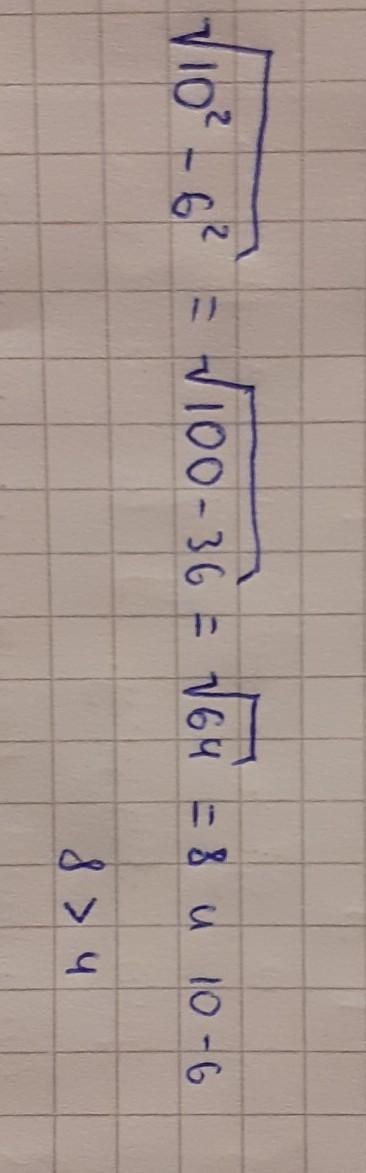 √10² - 6² = √100 - 36 = √64 = 8 и 10 - 6
8 > 4